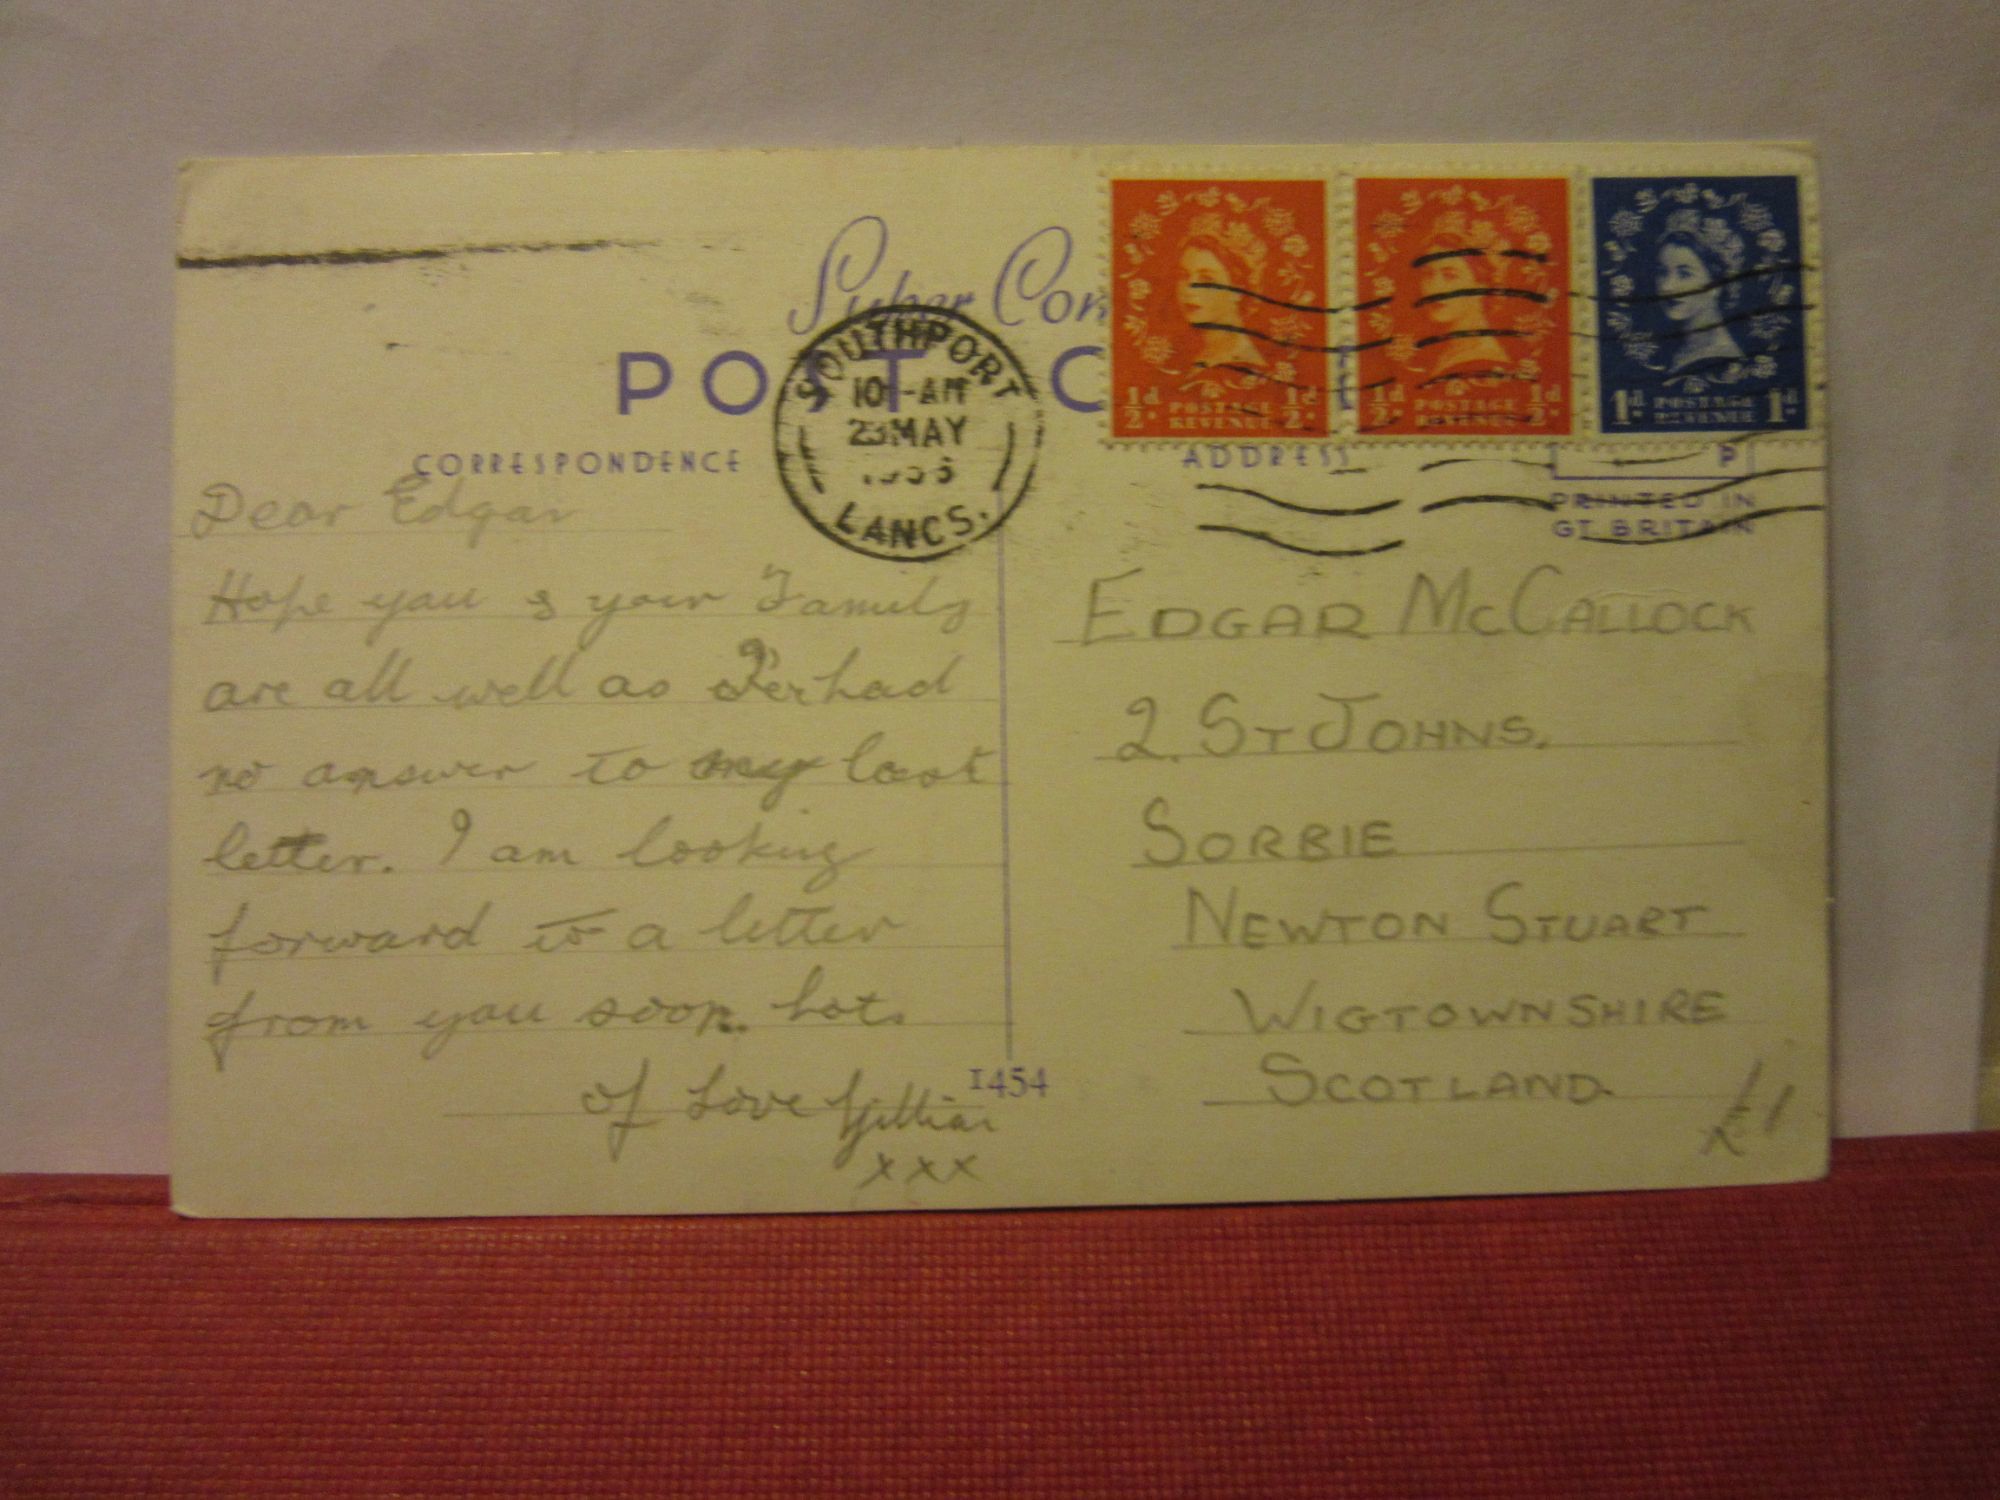 Super Con
POST C
SOUTHPORT
10-AM
23 MAY
LANCS.
½d POSTAGE REVENUE ½d
½d POSTAGE REVENUE ½d
1d POSTAGE REVENUE 1d
CORRESPONDENCE
ADDRESS
P
PRINTED IN
GT BRITAIN
Dear Edgar
Hope you & your Family
are all well as I've had
no answer to my last
letter. I am looking
forward to a letter
from you soon. Lots
of Love Gillian
xxx
1454
EDGAR MCCALLOCK
2. ST JOHNS.
SORBIE
NEWTON STUART
WIGTOWNSHIRE
SCOTLAND.
£1